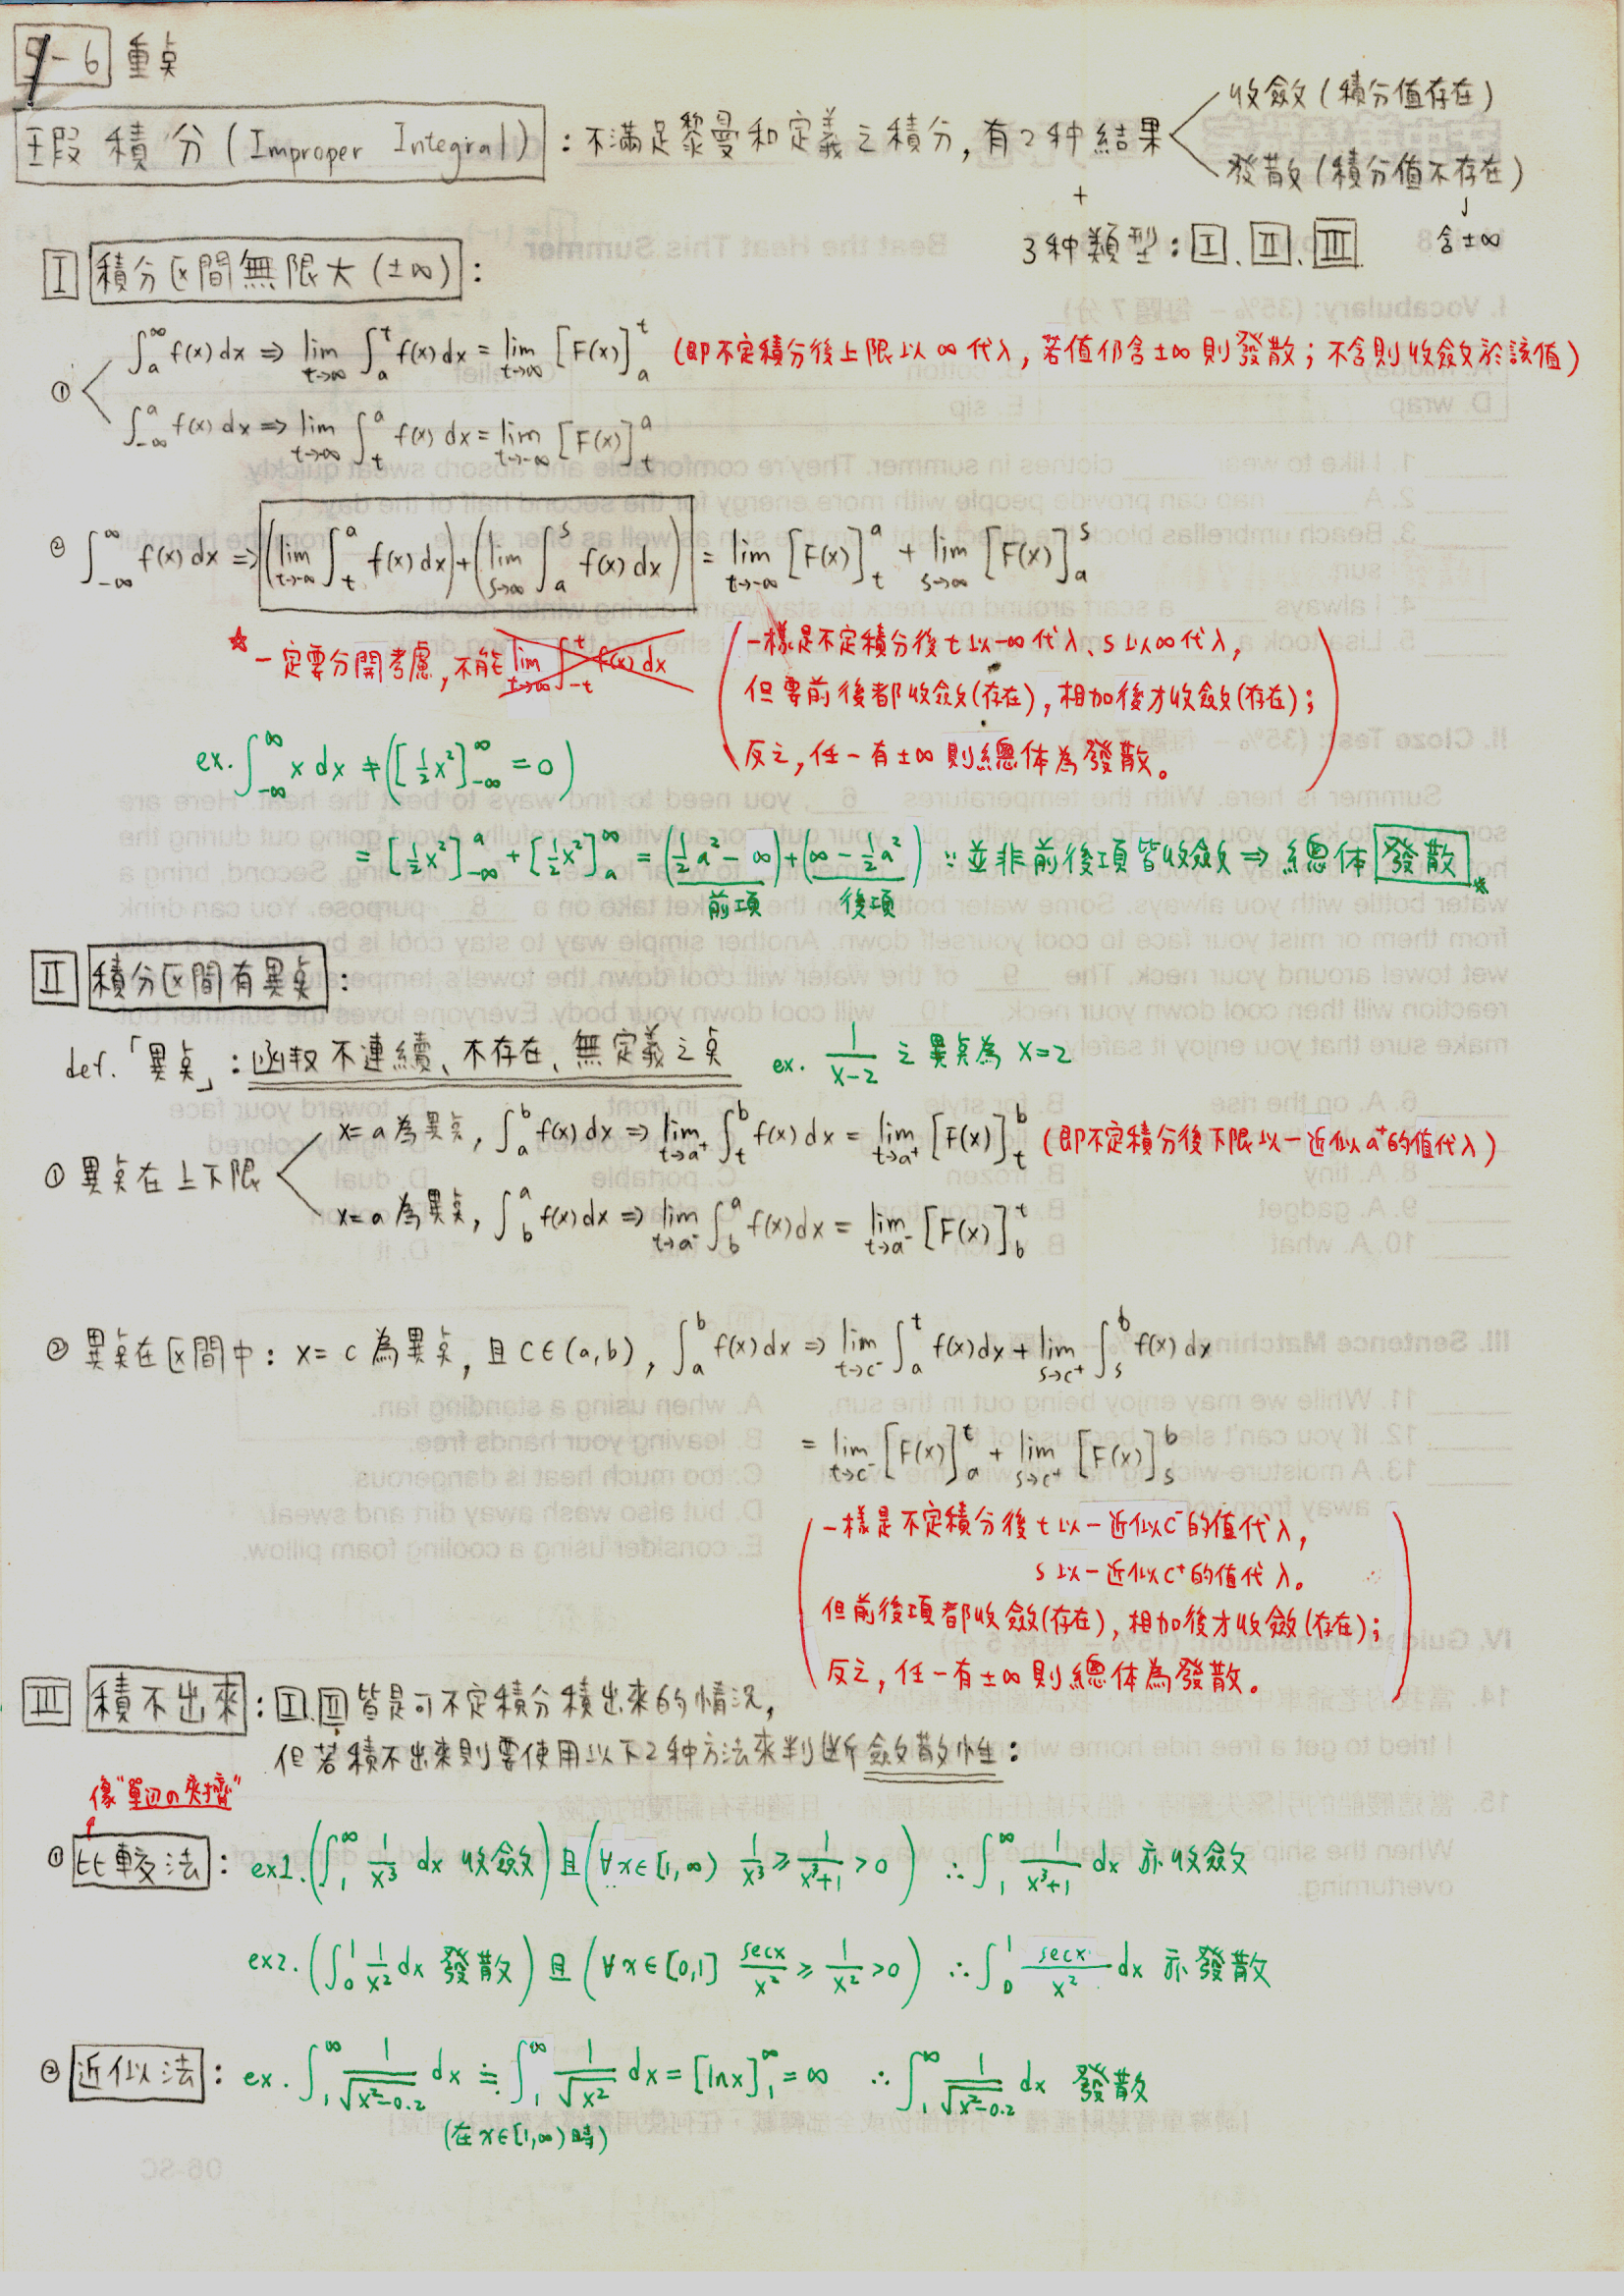 9-6 重点
瑕積分 (Improper Integral) : 不滿足黎曼和定義之積分, 有2种結果
收斂 (積分值存在)
發散 (積分值不存在)
↓
含±∞
+
3种類型: Ⅰ、Ⅱ、Ⅲ
Ⅰ 積分区間無限大 (±∞) :
① ∫_a^∞ f(x) dx ⇒ lim_{t→∞} ∫_a^t f(x) dx = lim_{t→∞} [F(x)]_a^t (即不定積分後上限以∞代入, 若值仍含±∞則發散; 不含則收斂於該值)
∫_{-∞}^a f(x) dx ⇒ lim_{t→-∞} ∫_t^a f(x) dx = lim_{t→-∞} [F(x)]_t^a
② ∫_{-∞}^∞ f(x) dx ⇒ (lim_{t→-∞} ∫_t^a f(x) dx) + (lim_{s→∞} ∫_a^s f(x) dx) = lim_{t→-∞} [F(x)]_t^a + lim_{s→∞} [F(x)]_a^s
☆ 一定要分開考慮, 不能 lim_{t→∞} ∫_{-t}^t f(x) dx
(一樣是不定積分後 t 以-∞代入、s 以∞代入,
但要前後都收斂(存在), 相加後才收斂(存在);
反之, 任一有±∞則總体為發散。)
ex. ∫_{-∞}^∞ x dx ≠ ([½x²]_{-∞}^∞ = 0)
= [½x²]_{-∞}^a + [½x²]_a^∞ = (½a² - ∞) + (∞ - ½a²) ∵ 並非前後項皆收斂 ⇒ 總体發散
前項 後項
Ⅱ 積分区間有異点 :
def. 「異点」: 函敉不連續、不存在、無定義之点 ex. 1/(x-2) 之異点為 x=2
① 異点在上下限
x=a為異点, ∫_a^b f(x) dx ⇒ lim_{t→a⁺} ∫_t^b f(x) dx = lim_{t→a⁺} [F(x)]_t^b (即不定積分後下限以一近似a⁺的值代入)
x=a為異点, ∫_b^a f(x) dx ⇒ lim_{t→a⁻} ∫_b^a f(x) dx = lim_{t→a⁻} [F(x)]_b^t
② 異点在区間中: x=c 為異点, 且 c∈(a,b), ∫_a^b f(x) dx ⇒ lim_{t→c⁻} ∫_a^t f(x) dx + lim_{s→c⁺} ∫_s^b f(x) dx
= lim_{t→c⁻} [F(x)]_a^t + lim_{s→c⁺} [F(x)]_s^b
(一樣是不定積分後 t 以一近似c⁻的值代入,
s 以一近似c⁺的值代入。
但前後項都收斂(存在), 相加後才收斂(存在);
反之, 任一有±∞則總体為發散。)
Ⅲ 積不出來 : Ⅰ.Ⅱ皆是可不定積分積出來的情況,
但若積不出來則要使用以下2种方法來判斷斂散性:
像"單边の夾擠"
① 比較法 : ex1. (∫_1^∞ 1/x³ dx 收斂) 且 (∀x∈[1,∞) 1/x³ ≥ 1/(x³+1) > 0) ∴ ∫_1^∞ 1/(x³+1) dx 亦收斂
ex2. (∫_0^1 1/x² dx 發散) 且 (∀x∈[0,1] secx/x² ≥ 1/x² > 0) ∴ ∫_0^1 secx/x² dx 亦發散
② 近似法 : ex. ∫_1^∞ 1/√(x²-0.2) dx ≒ ∫_1^∞ 1/√x² dx = [lnx]_1^∞ = ∞ ∴ ∫_1^∞ 1/√(x²-0.2) dx 發散
(在x∈[1,∞)時)